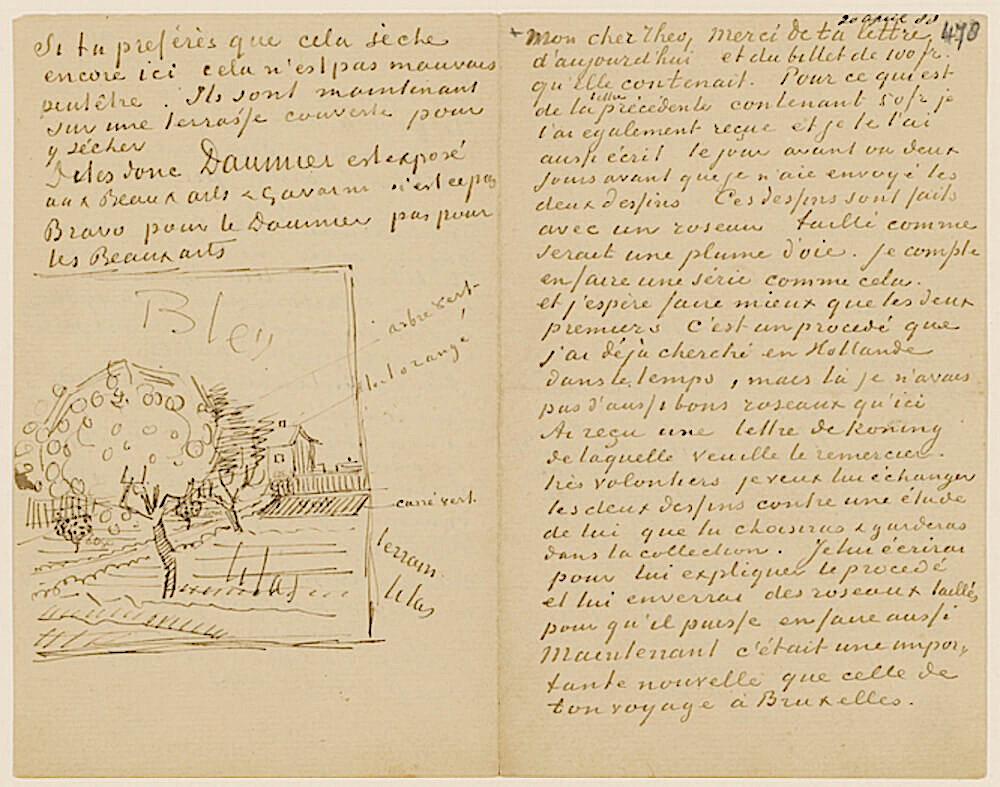 Si tu préférès que cela sèche
encore ici cela n'est pas mauvais
peutêtre. Ils sont maintenant
sur une terrasse couverte pour
y sécher
Dites donc Daumier est exposé
aux Beaux arts & Gavarni n'est ce pas
Bravo pour le Daumier pas pour
les Beaux arts
Bleu
arbre vert
toit orangé
carré vert.
terrain
lilas
lilas
20 april 88
478
Mon cher Theo, Merci de ta lettre
d'aujourd'hui et du billet de 100 fr.
qu'elle contenait. Pour ce qui est
de la lettre précédente contenant 50 fr je
l'ai également reçue et je te l'ai
aussi écrit le jour avant ou deux
jours avant que je n'aie envoyé les
deux dessins Ces dessins sont faits
avec un roseau taillé comme
serait une plume d'oie. Je compte
en faire une série comme cela.
et j'espère faire mieux que les deux
premiers C'est un procedé que
j'ai déjà cherché en Hollande
dans le tempo, mais là je n'avais
pas d'aussi bons roseaux qu'ici
Ai reçu une lettre de Koning
de laquelle veuille le remercier.
très volontiers je veux lui échanger
les deux dessins contre une étude
de lui que tu choisiras & garderas
dans la collection. Je lui écrirai
pour lui expliquer le procedé
et lui enverrai des roseaux taillés
pour qu'il puisse en faire aussi
Maintenant c'était une impor,
tante nouvelle que celle de
ton voyage à Bruxelles.